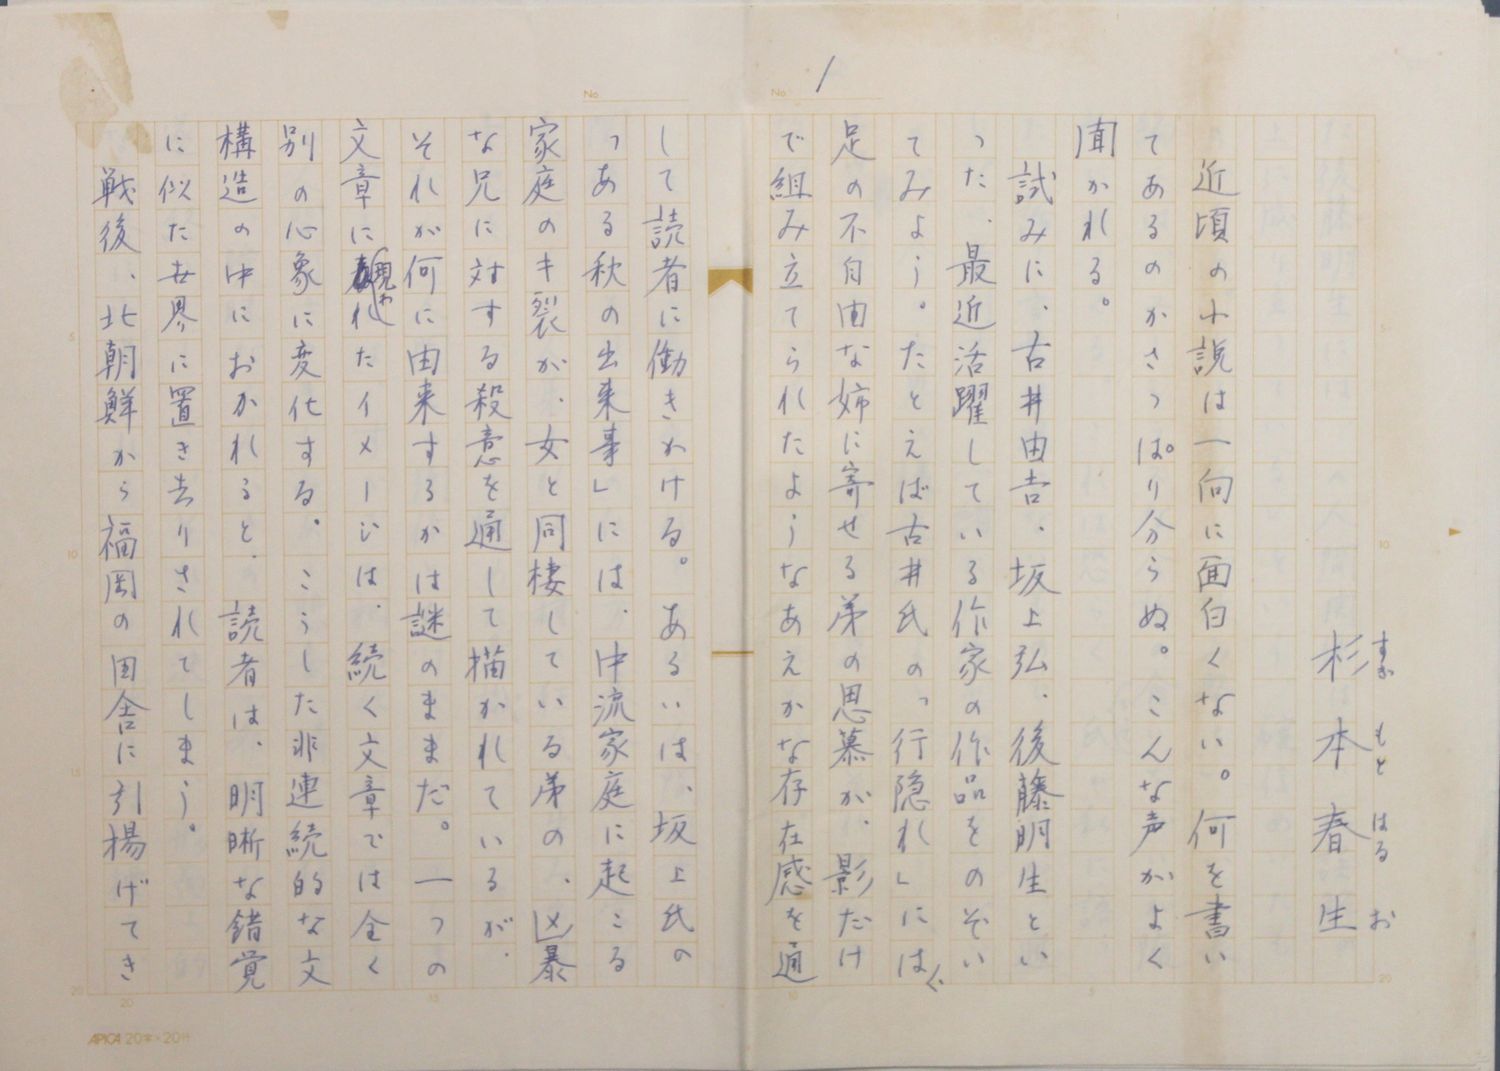 No. 1
杉本春生
すぎ もと はる お
近頃の小説は一向に面白くない。何を書い
てあるのかさっぱり分らぬ。こんな声がよく
聞かれる。
試みに、古井由吉、坂上弘、後藤明生とい
った、最近活躍している作家の作品をのぞい
てみよう。たとえば古井氏の「行隠れ」には、
足の不自由な姉に寄せる弟の思慕が、影だけ
で組み立てられたようなあえかな存在感を通
No.
して読者に働きかける。あるいは、坂上氏の
「ある秋の出来事」には、中流家庭に起こる
家庭のキ裂が、女と同棲している弟の、凶暴
な兄に対する殺意を通して描かれているが、
それが何に由来するかは謎のままだ。一つの
文章に現われたイメージは、続く文章では全く
別の心象に変化する。こうした非連続的な文
構造の中におかれると、読者は、明晰な錯覚
に似た世界に置き去りされてしまう。
戦後、北朝鮮から福岡の田舎に引揚げてき
5
10
15
20
5
10
15
20
APICA 20字×20行